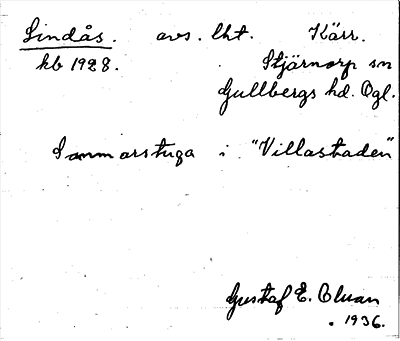 Lindås. avs. lht. Kärr.
kb 1928. Stjärnorp sn
Gullbergs hd. Ögl.
Sommarstuga i "Villastaden"
Gustaf E.
1936.